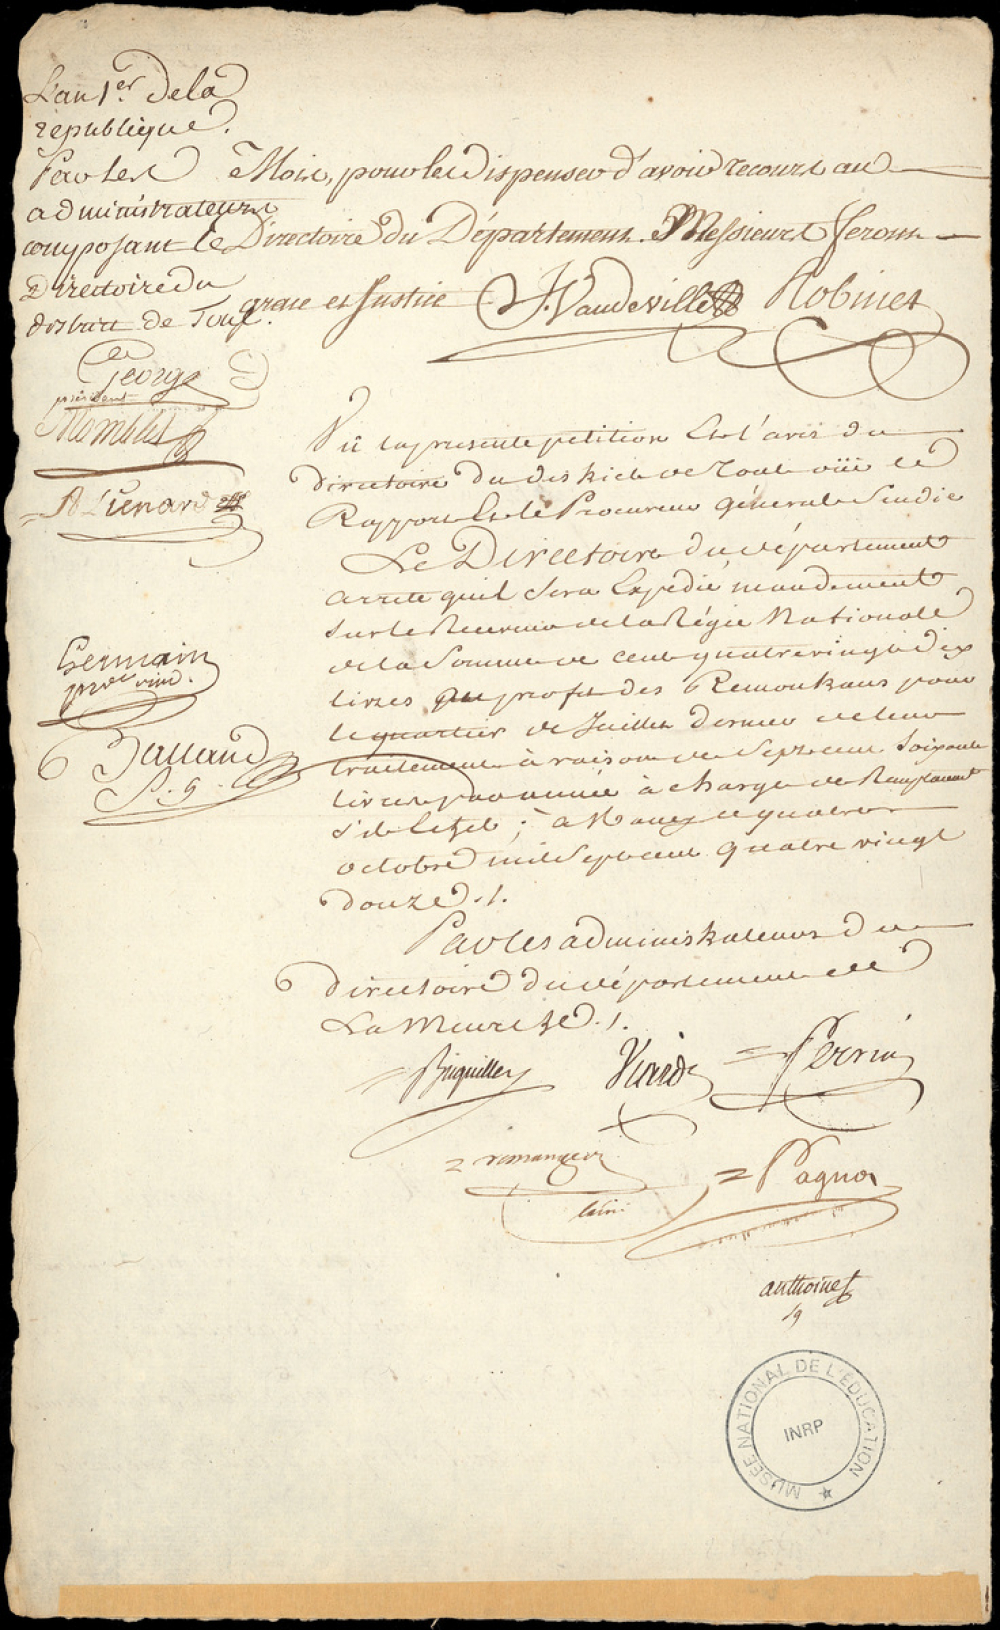 L'an 1er de la
république.
Par les
administrateurs
composant le
Directoire du
district de Toul.
George
président
A. Lienard
Germain
procr sind.
Balland
S. g.
Mois, pour les dispenser d'avoir recours au
Directoire du Département. Messieurs feront
grace et Justice J. Vaudeville Robinet
Vû la presente petition Et l'avis du
directoire du district de Toul oüi le
Rapport Et le Procureur général Sindic
Le Directoire du département
arrete quil Sera Expédié mandement
Sur le Receveur de la Régie Nationale
de la Somme de cent quatre vingt dix
livres au profit des Remontrans pour
le quartier de Juillet dernier de leur
traitement à raison de Sept cent Soixante
livres par année à charge de Remplacement
S'il Echet ; à Nancy le quatre
octobre mil Sept cent quatre vingt
douze ./.
Par les administrateurs du
directoire du département de
La Meurthe ./.
Biquilley Perrin
Pagnot
anthoine
sg
MUSÉE NATIONAL DE L'ÉDUCATION
INRP